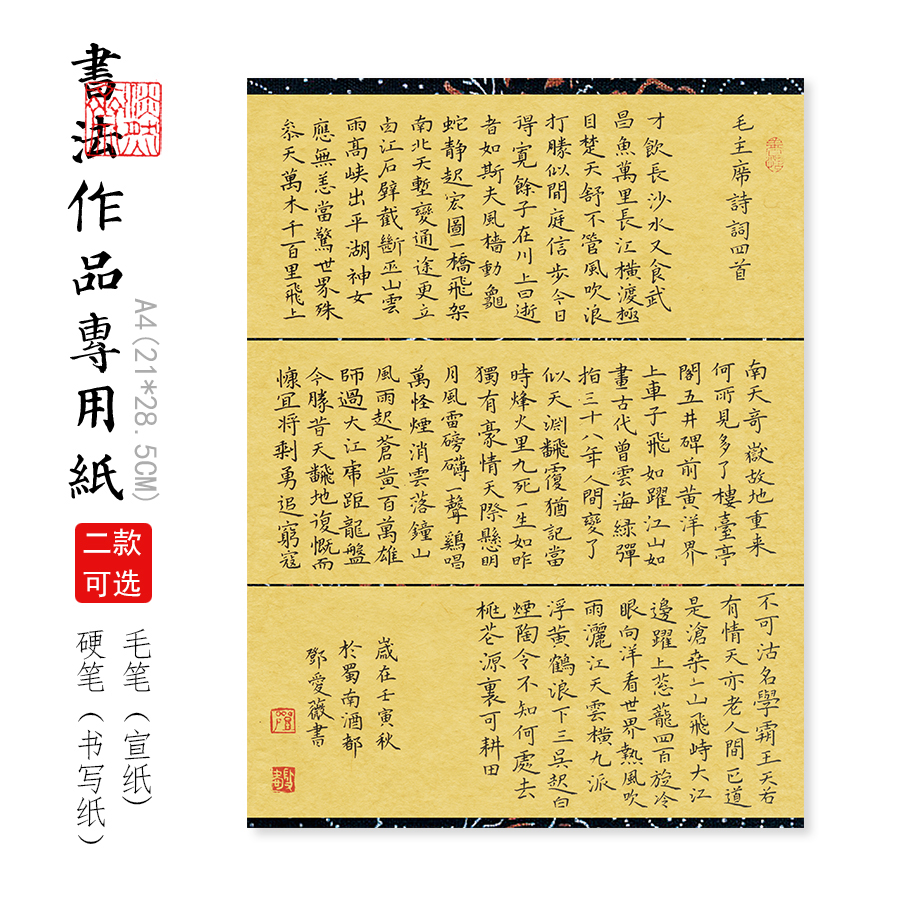 書法作品專用紙
A4(21*28.5CM)
二款
可选
毛笔(宣纸)
硬笔(书写纸)
毛主席詩詞四首
才飲長沙水又食武
昌魚萬里長江橫渡極
目楚天舒不管風吹浪
打勝似閒庭信步今日
得寬餘子在川上曰逝
者如斯夫風檣動龜
蛇静起宏圖一橋飛架
南北天塹變通途更立
西江石壁截斷巫山雲
雨高峡出平湖神女
應無恙當驚世界殊
叅天萬木千百里飛上
南天奇嶽故地重来
何所見多了樓臺亭
閣五井碑前黃洋界
上車子飛如躍江山如
畫古代曾雲海綠彈
指三十八年人間變了
似天淵飜覆猶記當
時烽火里九死一生如昨
獨有豪情天際懸明
月風雷磅礴一聲鷄唱
萬怪煙消雲落鐘山
風雨起蒼黃百萬雄
師過大江虎距龍盤
今勝昔天飜地復慨而
慷宜將剩勇追窮寇
不可沽名學霸王天若
有情天亦老人間正道
是滄桑一山飛峙大江
邊躍上葱蘢四百旋冷
眼向洋看世界熱風吹
雨灑江天雲橫九派
浮黃鶴浪下三吳起白
煙陶令不知何處去
桃花源裏可耕田
歲在壬寅秋
於蜀南酒都
鄧愛薇書